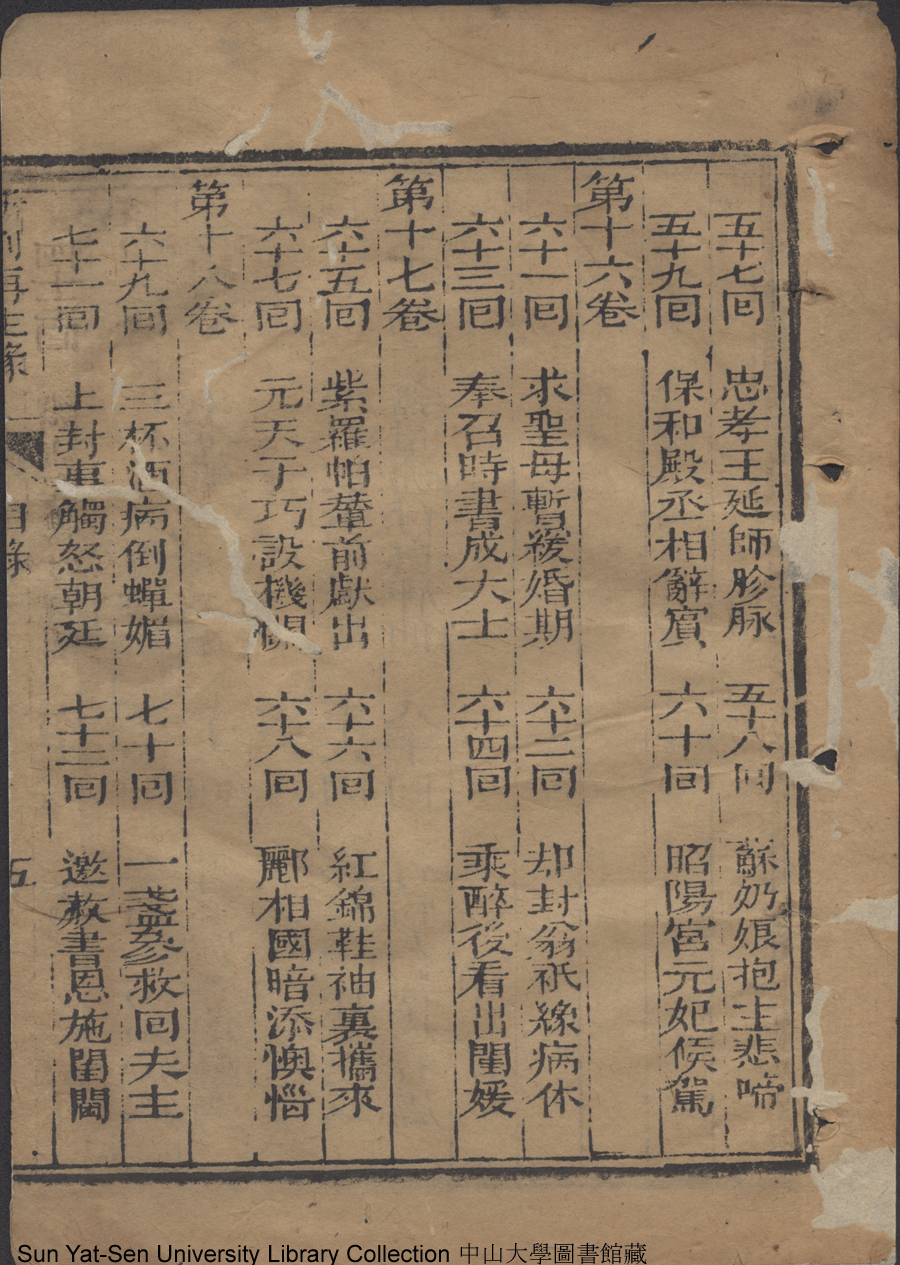 五十七回 忠孝王延師胗脉 五十八回 蘇奶娘抱主悲啼
五十九回 保和殿丞相辭賔 六十回 昭陽宮元妃候駕
第十六卷
六十一回 求聖母暫緩婚期 六十二回 却封翁祇緣病休
六十三回 奉召時書成大士 六十四回 乘醉後看出閨媛
第十七卷
六十五回 紫羅帕輦前獻出 六十六回 紅錦鞋袖裏攜來
六十七回 元天子巧設機關 六十八回 酈相國暗添懊惱
第十八卷
六十九回 三杯酒病倒蟬媚 七十回 一盞參救回夫主
七十一回 上封事觸怒朝廷 七十二回 邀赦書恩施閨閫
再生緣 目錄 五
Sun Yat-Sen University Library Collection 中山大學圖書館藏